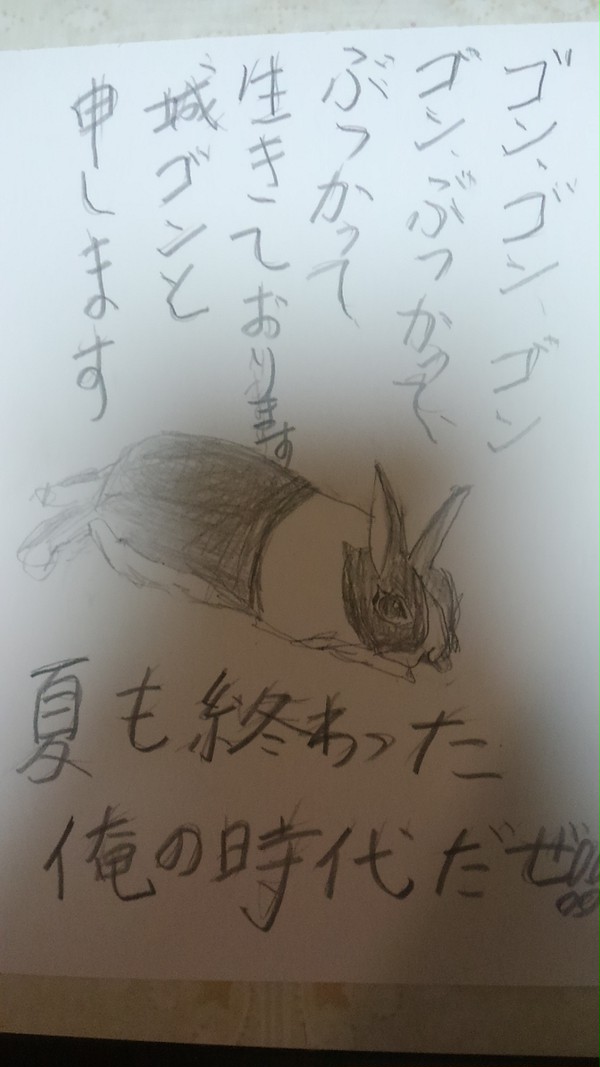 ゴン、ゴン、ゴン
ゴン、ぶつかって、
ぶつかって
生きております
城ゴンと
申します
夏も終わった
俺の時代だぜ!!!